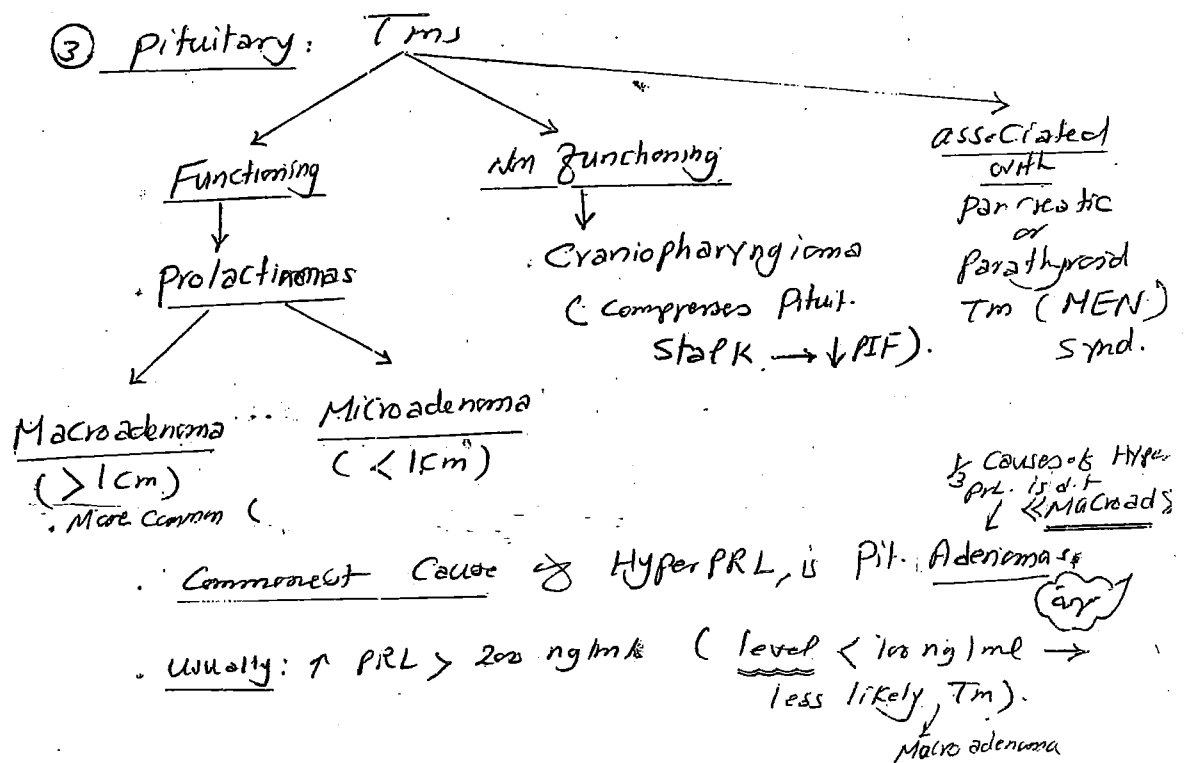 ③ Pituitary: Tms
Functioning
Prolactinomas
Macroadenoma
(> 1 cm)
. More Common (
Microadenoma
(< 1 cm)
Non functioning
. Craniopharyngioma
( compresses Pituit.
Stalk → ↓ PIF).
associated
with
pancreatic
or
Parathyroid
Tm (MEN)
Synd.
1/3 Causes of Hyper
PRL. is d.t
<<Macroad>>
. Commonest Cause of HyperPRL, is Pit. Adenomas
. Usually: ↑ PRL > 200 ng/ml ( level < 100 ng/ml →
less likely, Tm).
Macroadenoma